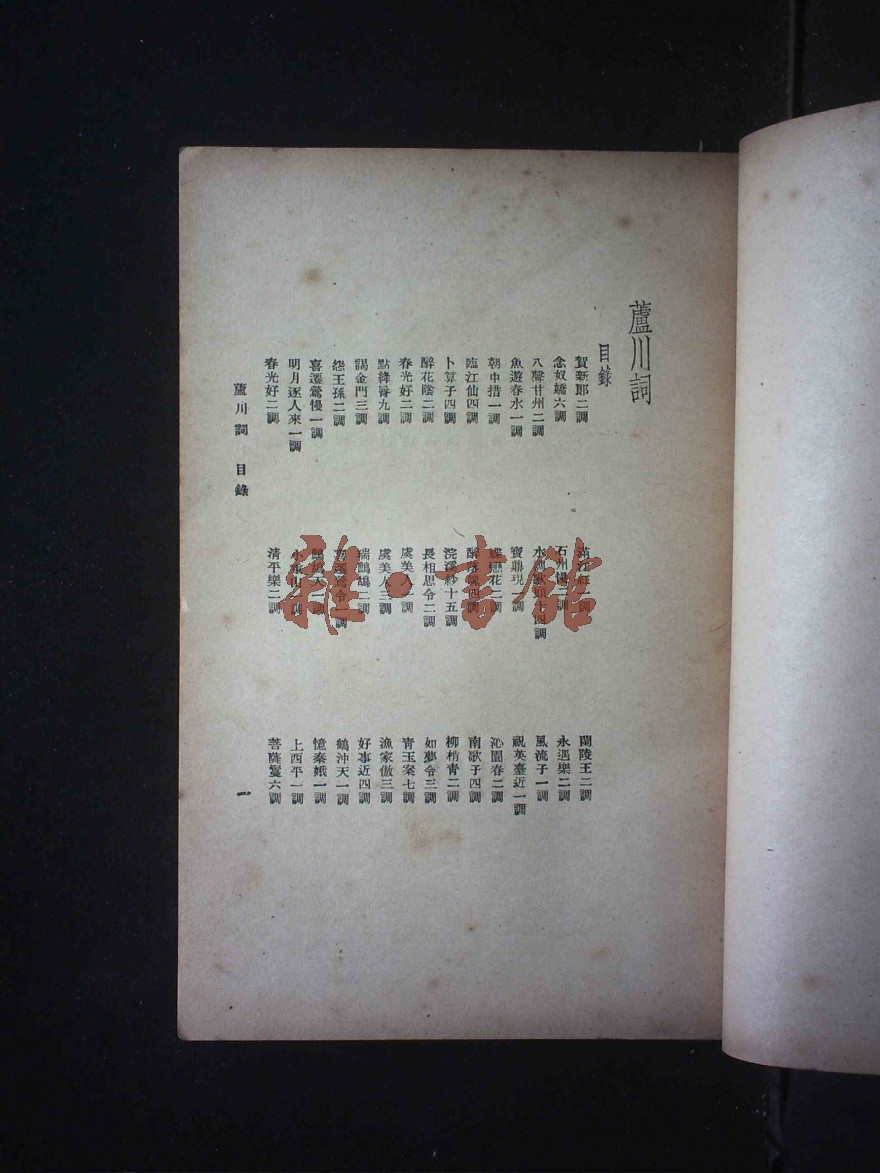 蘆川詞
目錄
賀新郎二調
滿江紅 調
蘭陵王二調
念奴嬌六調
石州慢二調
永遇樂二調
八聲甘州二調
水調歌頭十四調
風流子一調
魚遊春水一調
寶鼎現一調
祝英臺近一調
朝中措一調
蝶戀花二調
沁園春二調
臨江仙四調
醉落魄四調
南歌子四調
卜算子四調
浣溪紗十五調
柳梢青二調
醉花陰二調
長相思令二調
如夢令三調
春光好二調
虞美人 調
青玉案七調
點絳脣九調
虞美人三調
漁家傲三調
謁金門三調
瑞鷓鴣二調
好事近四調
怨王孫二調
喜遷鶯令一調
鶴沖天一調
喜遷鶯慢一調
鷓鴣天 調
憶秦娥一調
明月逐人來一調
小重山 調
上西平一調
春光好二調
清平樂二調
菩薩鬘六調
蘆川詞 目錄
一
雅·書館